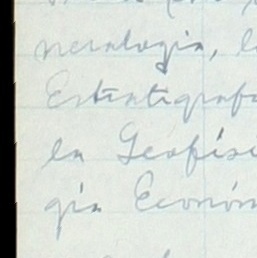 neralogía, l
Estratigraf
en Geofísi
gía Económ